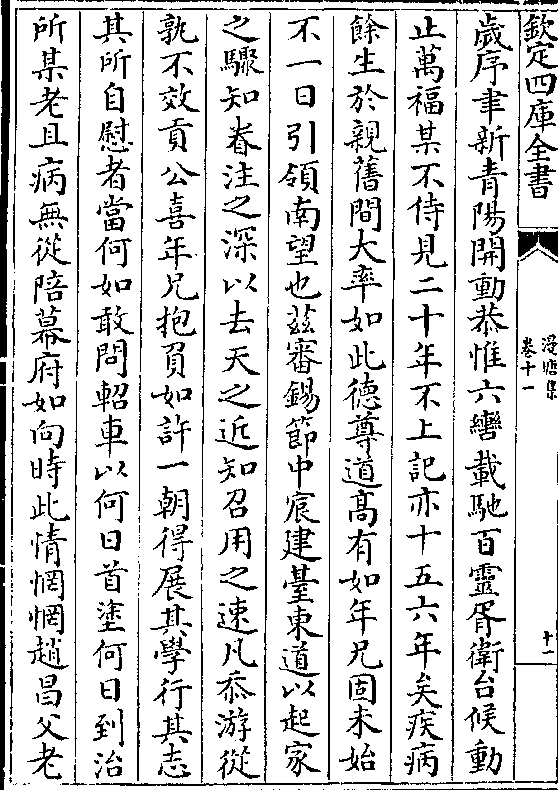 欽定四庫全書
漫塘集
卷十一
十一
歲序聿新青陽開動恭惟六轡載馳百靈胥衛台候動
止萬福某不侍見二十年不上記亦十五六年矣疾病
餘生於親舊間大率如此德尊道髙有如年兄固未始
不一日引領南望也兹審錫節中宸建臺東道以起家
之驟知眷注之深以去天之近知召用之速凡忝游從
孰不效貢公喜年兄抱負如許一朝得展其學行其志
其所自慰者當何如敢問軺車以何日首塗何日到治
所某老且病無從陪幕府如向時此情惘惘趙昌父老